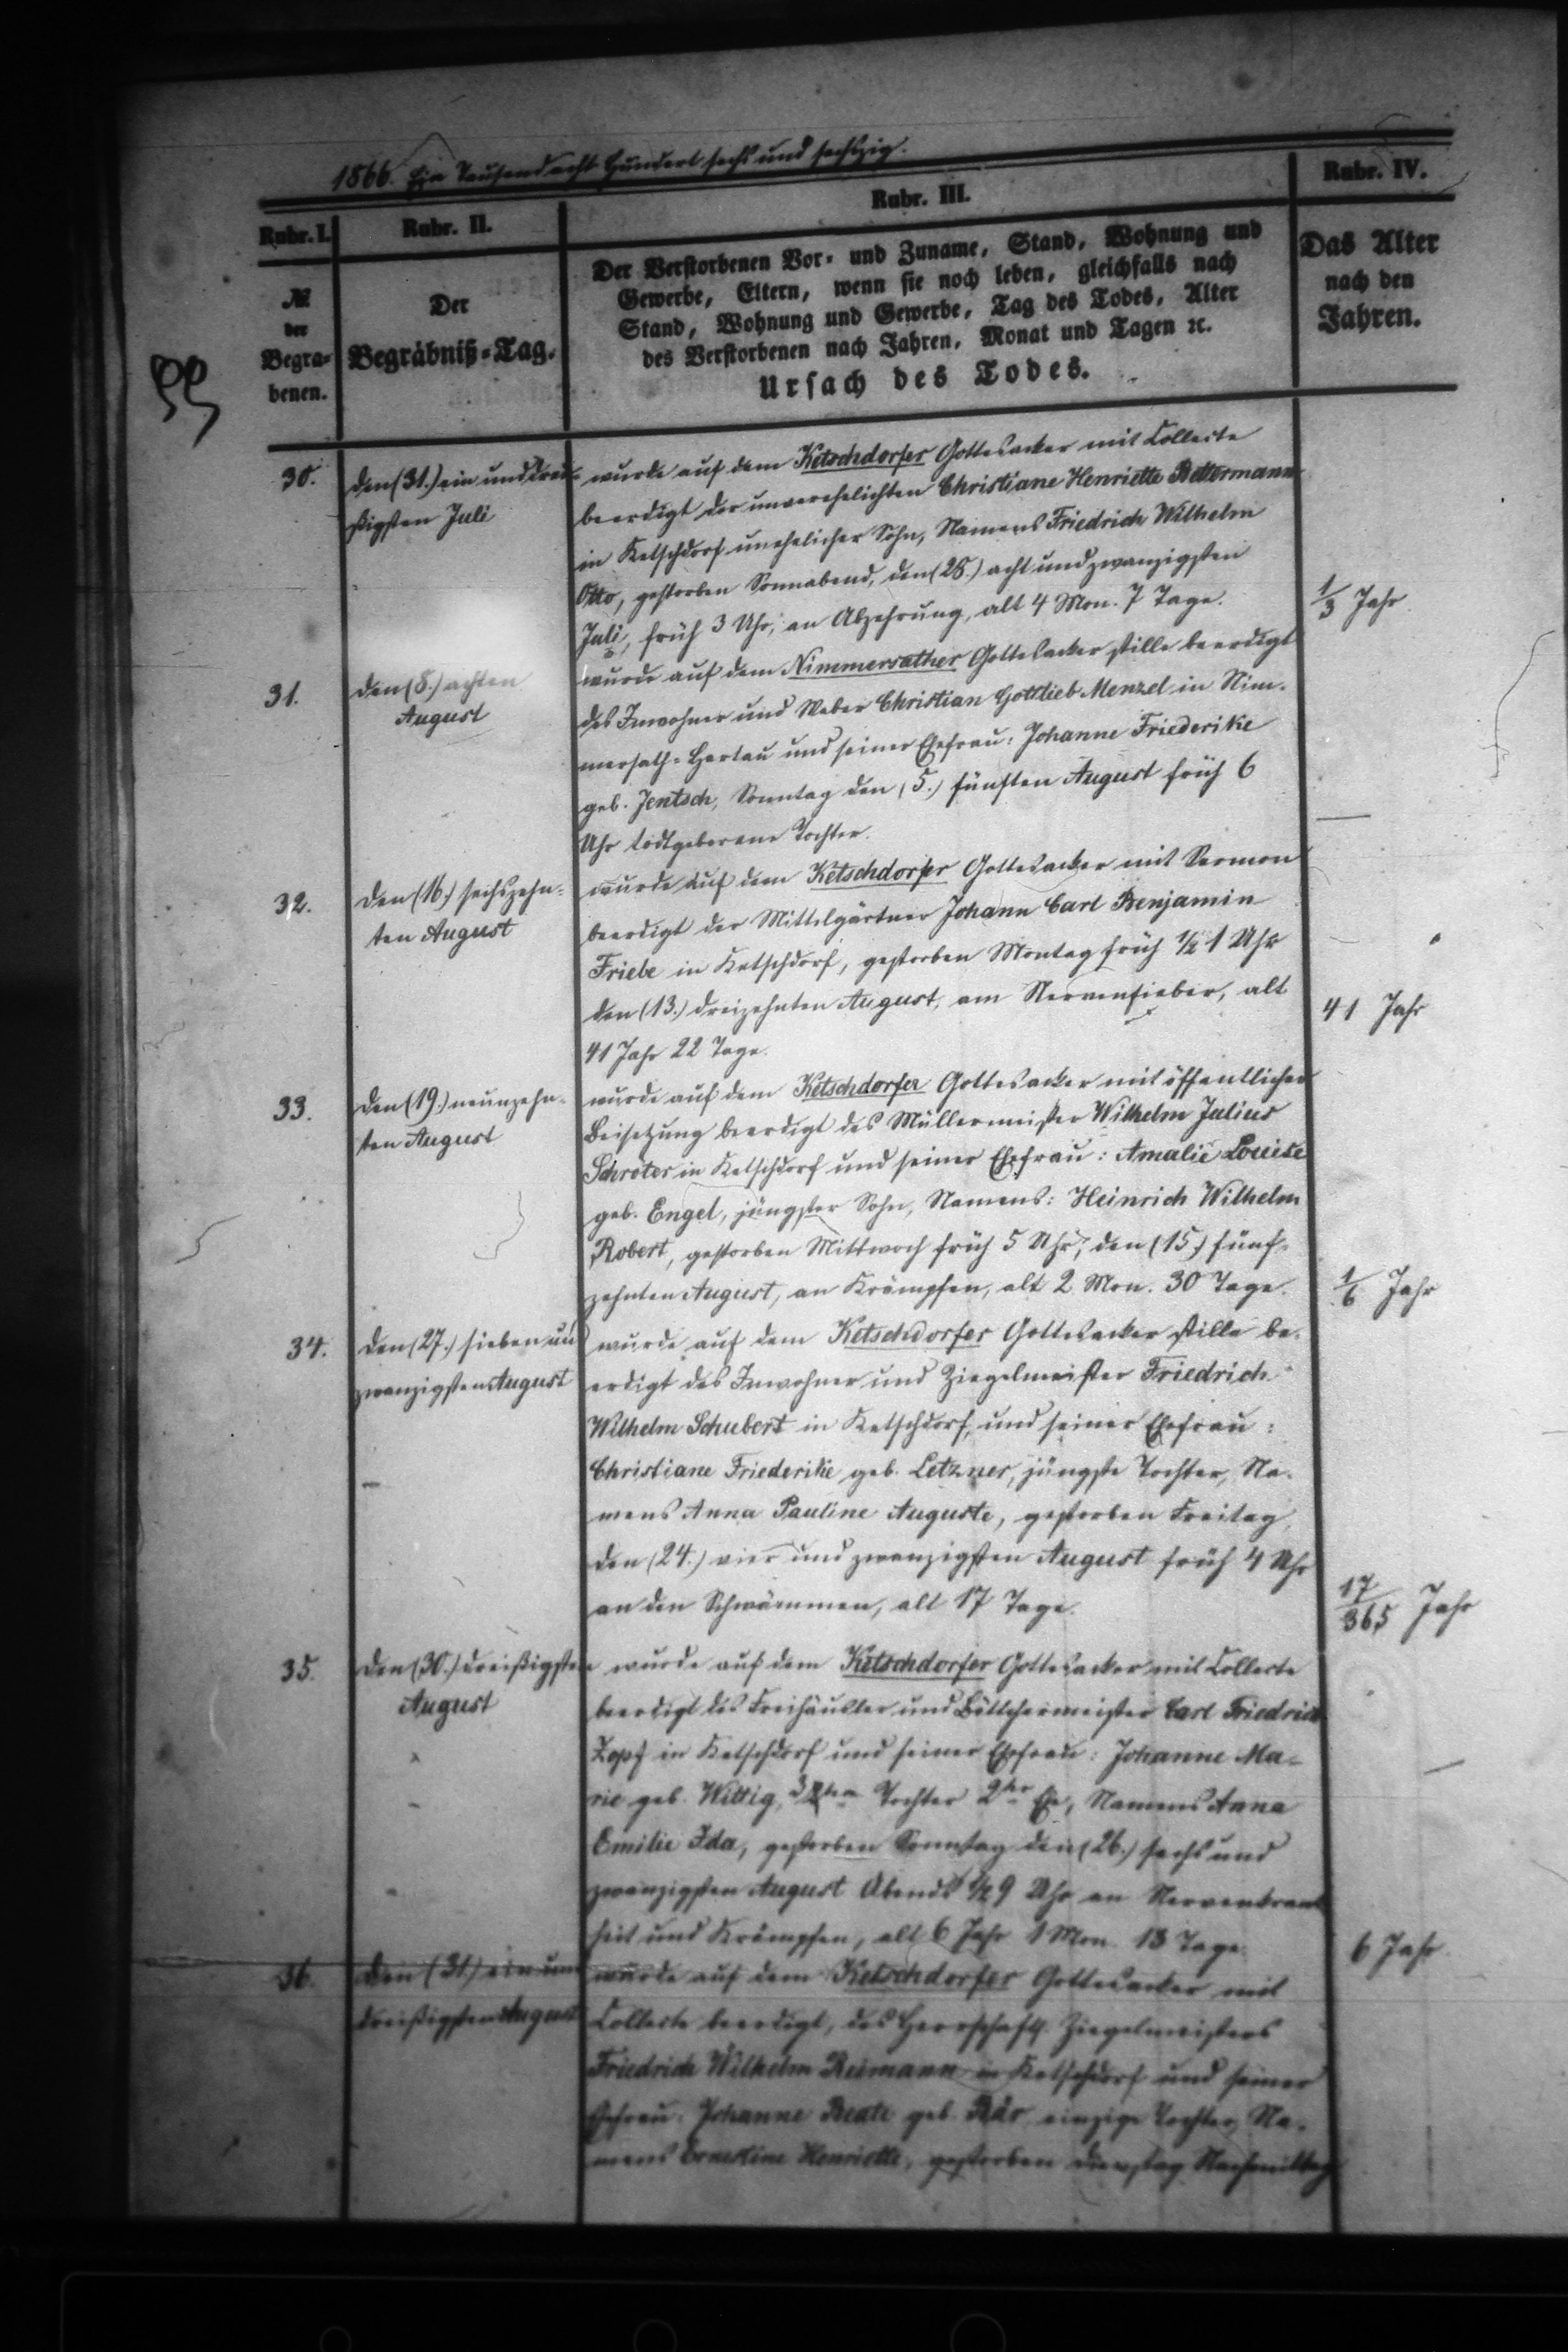 1866. Ein Tausend acht Hundert sechs und sechszig.
Rubr. I.
Rubr. II.
Rubr. III.
Rubr. IV.
№
der
Begra-
benen.
Der
Begräbniß-Tag.
Der Verstorbenen Vor- und Zuname, Stand, Wohnung und
Gewerbe, Eltern, wenn sie noch leben, gleichfalls nach
Stand, Wohnung und Gewerbe, Tag des Todes, Alter
des Verstorbenen nach Jahren, Monat und Tagen ꝛc.
Ursach des Todes.
Das Alter
nach den
Jahren.
30.
den (31.) ein und drei-
ßigsten Juli
wurde auf dem Ketschdorfer Gottesacker mit Collecte
beerdigt der unverehelichten Christiane Henriette Bettermann
in Ketschdorf unehelicher Sohn, Namens Friedrich Wilhelm
Otto, gestorben Sonnabend, den (28.) acht und zwanzigsten
Juli, früh 3 Uhr, an Abzehrung, alt 4 Mon. 7 Tage.
1/3 Jahr
31.
den (8.) achten
August
wurde auf dem Nimmersather Gottesacker stille beerdigt
des Inwohner und Weber Christian Gottlieb Menzel in Nim-
mersath-Hartau und seiner Ehefrau: Johanne Friederike
geb. Jentsch, Sonntag den (5.) fünften August früh 6
Uhr todtgeborene Tochter.
—
32.
den (16.) sechszehn-
ten August
wurde auf dem Ketschdorfer Gottesacker mit Sermon
beerdigt der Mittelgärtner Johann Carl Benjamin
Friebe in Ketschdorf, gestorben Montag früh 1/2 1 Uhr
den (13.) dreizehnten August, am Nervenfieber, alt
41 Jahr 22 Tage.
41 Jahr
33.
den (19.) neunzehn-
ten August
wurde auf dem Ketschdorfer Gottesacker mit öffentlicher
Beisetzung beerdigt des Müllermeister Wilhelm Julius
Schröter in Ketschdorf und seiner Ehefrau: Amalie Louise
geb. Engel, jüngster Sohn, Namens: Heinrich Wilhelm
Robert, gestorben Mittwoch früh 5 Uhr, den (15.) fünf-
zehnten August, an Krämpfen, alt 2 Mon. 30 Tage.
1/6 Jahr
34.
den (27.) sieben und
zwanzigsten August
wurde auf dem Ketschdorfer Gottesacker stille be-
erdigt des Inwohner und Ziegelmeister Friedrich
Wilhelm Schubert in Ketschdorf, und seiner Ehefrau:
Christiane Friederike geb. Letzner, jüngste Tochter, Na-
mens Anna Pauline Auguste, gestorben Freitag,
den (24.) vier und zwanzigsten August früh 4 Uhr
an den Schwämmen, alt 17 Tage.
17/365 Jahr
35.
den (30.) dreißigsten
August
wurde auf dem Ketschdorfer Gottesacker mit Collecte
beerdigt des Freihäusler und Böttchermeister Carl Friedrich
Zopf in Ketschdorf und seiner Ehefrau: Johanne Ma-
rie geb. Wittig, Tochter 2ter Ehe, Namens Anna
Emilie Ida, gestorben Sonntag den (26.) sechs und
zwanzigsten August Abends 1/2 9 Uhr an Nervenkrank
heit und Krämpfen, alt 6 Jahr 1 Mon. 13 Tage.
6 Jahr.
36.
den (31.) ein und
dreißigsten August
wurde auf dem Ketschdorfer Gottesacker mit
Collecte beerdigt, des Herrschaftl. Ziegelmeisters
Friedrich Wilhelm Reimann in Ketschdorf und seiner
Ehefrau: Johanne Beate geb. Bär einzige Tochter, Na-
mens Ernestine Henriette, gestorben Dienstag Nachmittag